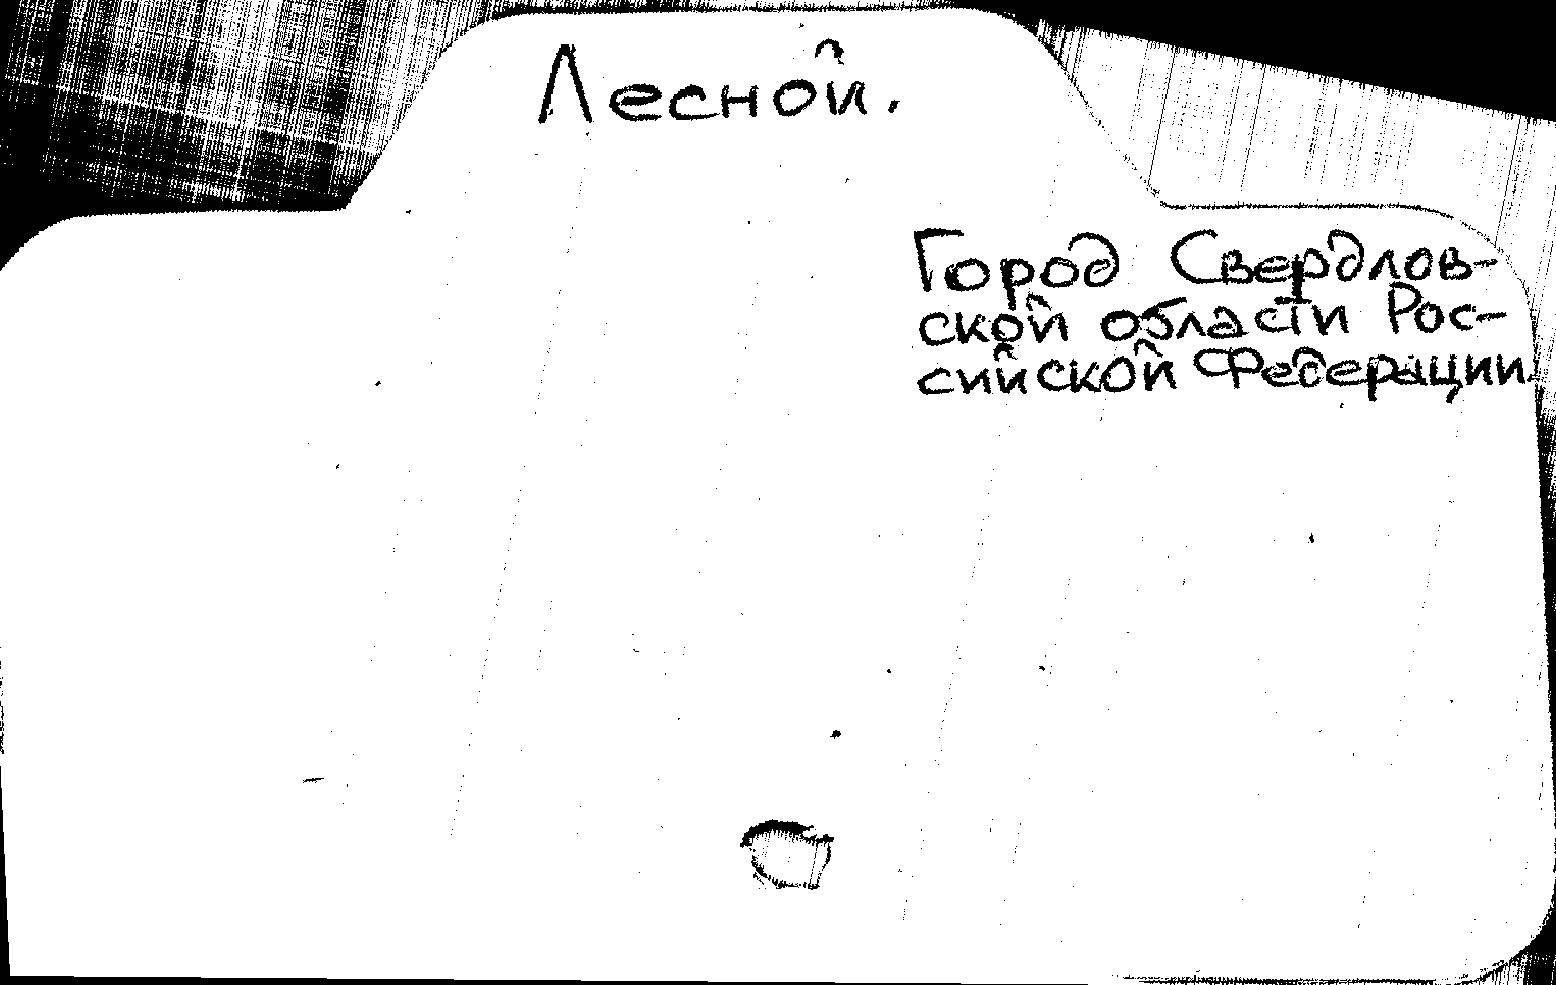 Лесной.
Город Свердлов-
ской области Рос-
сийской Федерации.